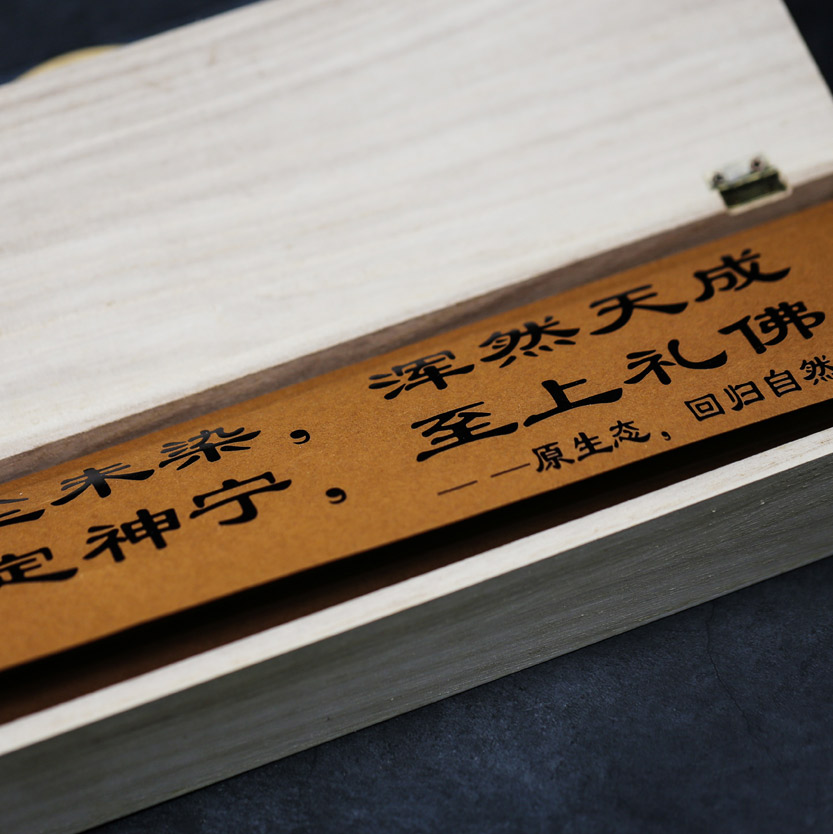 尘未染，浑然天成
定神宁，至上礼佛
——原生态，回归自然